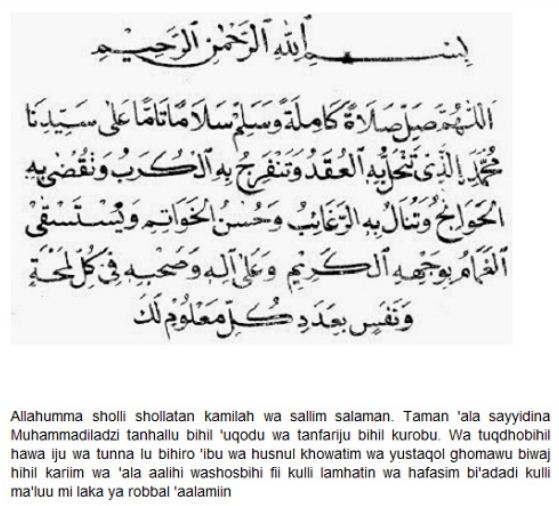 بِسْمِ اللهِ الرَّحْمٰنِ الرَّحِيْمِ
اَللّٰهُمَّ صَلِّ صَلَاةً كَامِلَةً وَسَلِّمْ سَلَامًا تَامًّا عَلٰى سَيِّدِنَا
مُحَمَّدٍ الَّذِيْ تَنْحَلُّ بِهِ الْعُقَدُ وَتَنْفَرِجُ بِهِ الْكُرَبُ وَتُقْضٰى بِهِ
الْحَوَائِجُ وَتُنَالُ بِهِ الرَّغَائِبُ وَحُسْنُ الْخَوَاتِمِ وَيُسْتَسْقَى
الْغَمَامُ بِوَجْهِهِ الْكَرِيْمِ وَعَلٰى اٰلِهِ وَصَحْبِهِ فِيْ كُلِّ لَمْحَةٍ
وَنَفَسٍ بِعَدَدِ كُلِّ مَعْلُوْمٍ لَكَ
Allahumma sholli shollatan kamilah wa sallim salaman. Taman 'ala sayyidina
Muhammadiladzi tanhallu bihil 'uqodu wa tanfariju bihil kurobu. Wa tuqdhobihil
hawa iju wa tunna lu bihiro 'ibu wa husnul khowatim wa yustaqol ghomawu biwaj
hihil kariim wa 'ala aalihi washosbihi fii kulli lamhatin wa hafasim bi'adadi kulli
ma'luu mi laka ya robbal 'aalamiin